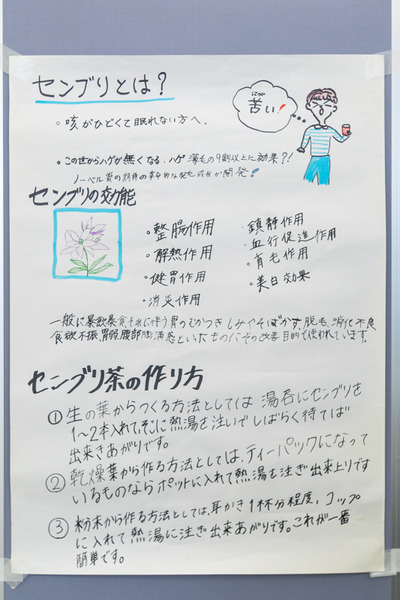 センブリとは？
にがい
苦い！
。咳がひどくて眠れない方へ。
。この世からハゲが無くなる、ハゲ薄毛の9割以上に効果?!
ノーベル賞の
センブリの効能
・整腸作用
・解熱作用
・健胃作用
・消炎作用
・鎮静作用
・血行促進作用
・育毛作用
・美白効果
一般に暴飲暴食それに伴う胃のむかつき しみやそばかす、脱毛、消化不良
食欲不振、胃弱、腹部膨満感といったものやその改善目的で使われています。
センブリ茶の作り方
①生の葉からつくる方法としては 湯呑にセンブリを
1〜2本入れて、そこに熱湯を注いでしばらく待てば
出来きあがりです。
②乾燥葉から作る方法としては、ティーパックになって
いるものならポットに入れて熱湯を注ぎ出来上りです
③粉末から作る方法としては、耳かき1杯分程度、コップ
に入れて熱湯に注ぎ出来あがりです。これが一番
簡単です。